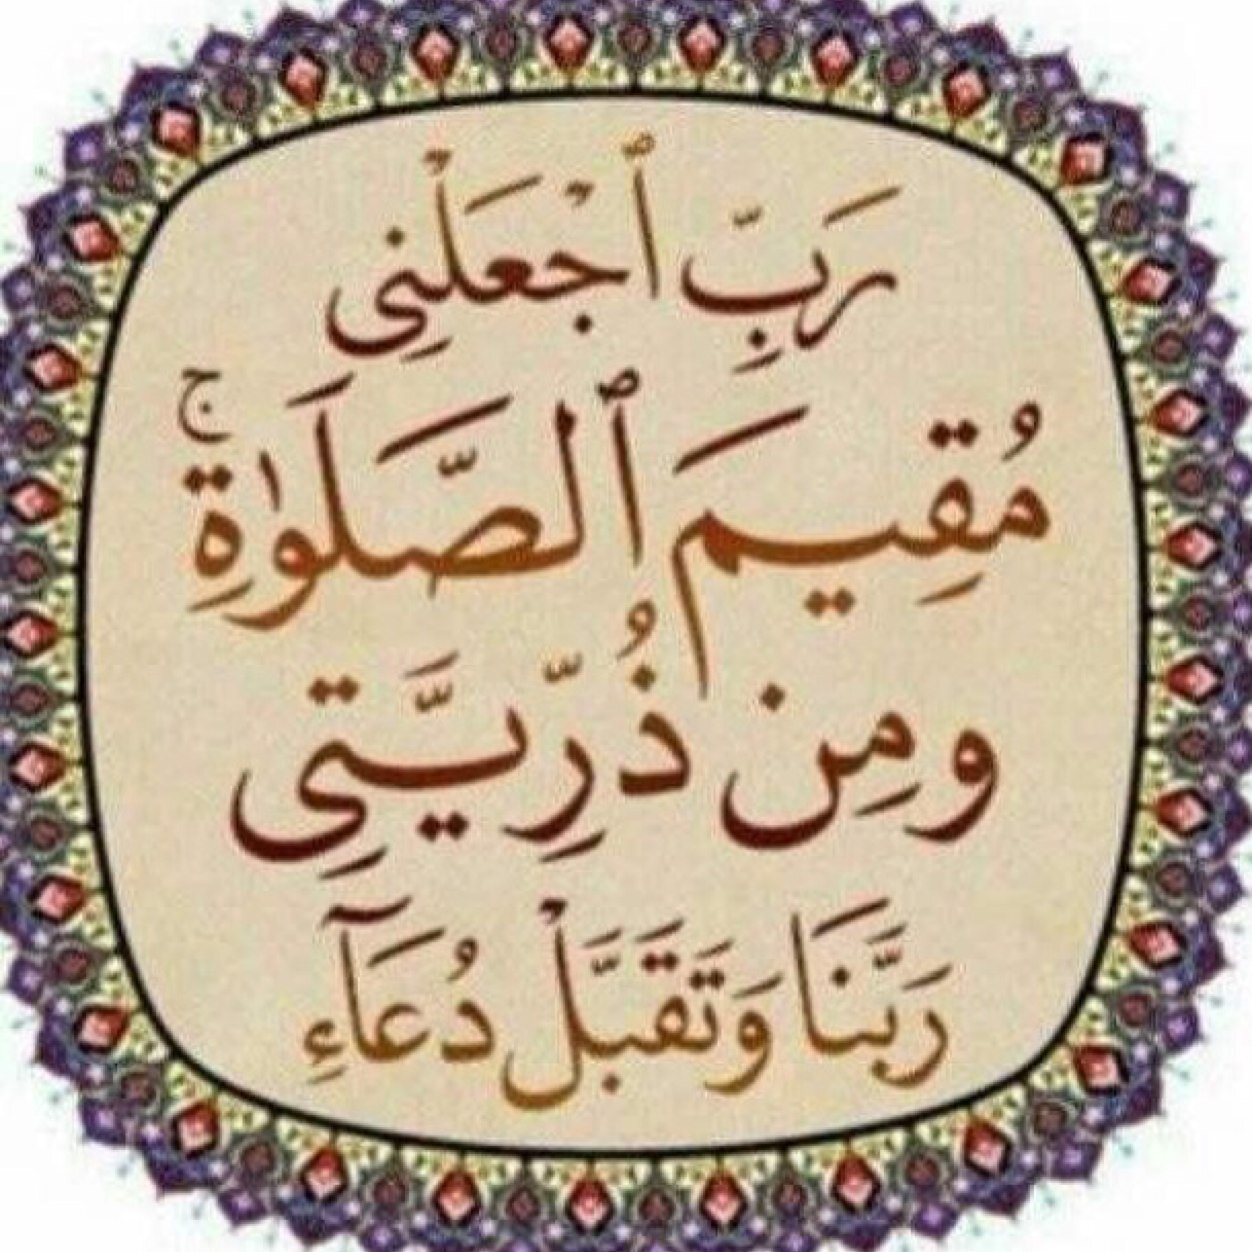 رَبِّ ٱجْعَلْنِى
مُقِيمَ ٱلصَّلَوٰةِ ۚ
ومِن ذُرِّيَّتِى
رَبَّنَا وَتَقَبَّلْ دُعَآءِ